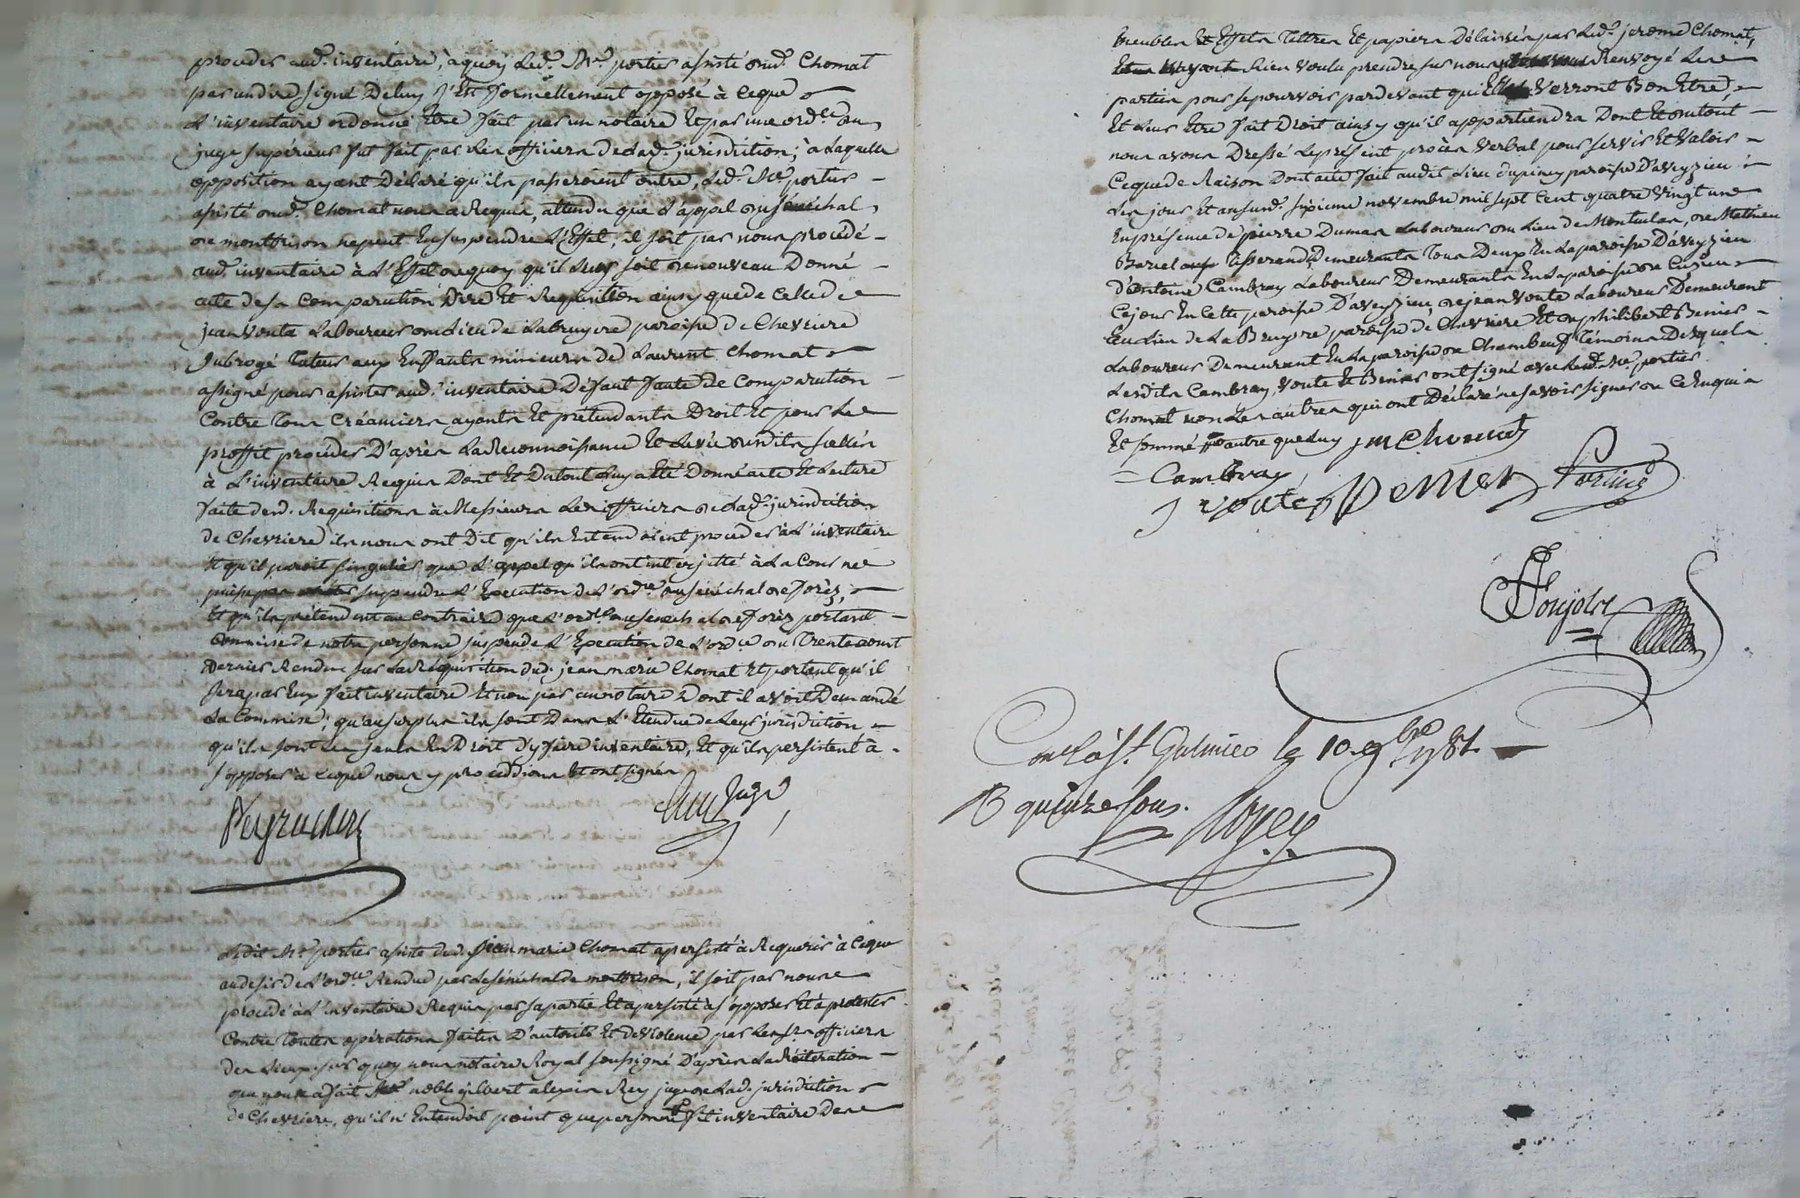 proceder aud. inventaire, a quoy led. Me portier assisté dud. Chomat
par un dire signé de luy s'est formellement opposé à ceque
L'inventaire ordonné Etre fait par un notaire Et par une ordce du
juge superieur fut fait par les officiers de lad. jurisdiction; à laquelle
opposition ayant Déclaré qu'ils passeroient outre, led. Me portier
assisté dud. Chomat nous a Requis, attendu que L'appel du senéchal
de montbrison ne peut En suspendre L'Effet, il soit par nous procédé
aud. inventaire à L'Effet de quoy qu'il luy soit de nouveau Donné
acte de sa Comparution Dire Et Requisition ainsy que de Celle de
jean Vonte Laboureur du Lieu de Labruyere paroisse de Chevriere
subrogé Tuteur aux Enffants mineurs de Laurent Chomat
assigné pour assister aud. inventaire Defaut faute de Comparution
Contre Tous Créanciers ayants Et prétendants Droit Et pour Le
proffit proceder D'après La Reconnoissance Et Levée desdits scellés
à L'inventaire Requis Dont Et Dutout Luy a Eté Donné acte Et Lecture
faite desd. Requisitions à Messieurs Les officiers de Lad. jurisdiction
de Chevriere ils nous ont Dit qu'ils Entendoient proceder à L'inventaire
Et qu'il paroit singulier que L'appel qu'ils ont interjetté à La Cour ne
puisse pas suspendre L'Execution de L'ordce du senéchal de forèz,
Et qu'ils prétendent au Contraire que L'ordce du senechal de forèz portant
Commise de notre personne suspende L'Execution de L'ordce du Trente aoust
Dernier Rendue sur La Requisition dud. jean marie Chomat Et portant qu'il
sera par Eux fait inventaire Et non par un notaire Dont il avoit Demandé
La Commise; qu'au surplus ils sont Dans L'Etendue de Leur jurisdiction
qu'ils sont Les seuls En Droit d'y faire inventaire, Et qu'ils persistent à
s'opposer à ceque nous y procedions Et ont signés
Rey Juge
Ledit Me portier assisté dud. jean marie Chomat a persisté à Requerir à Ceque
au desir de L'ordce Rendue par Le sénéchal de montbrison, il soit par nous
procédé à L'inventaire Requis par sa partie Et a persisté à s'opposer Et à protester
Contre Toutes opérations faites D'autorité Et de violence par Les srs officiers
des Lieux, sur quoy nous notaire Royal soussigné D'après La Réiteration
que nous a fait Me noble gilbert alexis Rey juge de Lad. jurisdiction
de Chevriere, qu'il n'Entendoit point que personne fit inventaire des
meubles Et Effets Tittres Et papiers Délaissés par Led. jerome Chomat,
Rien voulu prendre sur nous Renvoyé Les
parties pour se pourvoir pardevant qui Elles Verront Bon Etre,
Et Leur Etre fait Droit ainsy qu'il appartiendra Dont Et du tout
nous avons Dressé Le présent procès Verbal pour servir Et Valoir
Ceque de Raison Dont acte fait audit Lieu paroisse D'aveyzieu
Les jour Et an susd. sixieme novembre mil sept Cent quatre Vingt une
En présence de pierre Dumas Laboureur du Lieu de Montuclas, de Mathieu
Tisserand, Demeurants Tous Deux En La paroisse D'aveyzieu
d'antoine Cambray Laboureur Demeurants En La paroisse de Cuzieu
Cejour En Cette paroisse D'aveyzieu, de jean Vonte Laboureur Demeurant
au Lieu de La Bruyere paroisse de Chevriere Et de philibert
Laboureur Demeurant En La paroisse de Chambeuf Témoins Desquels
Lesdits Cambray, Vonte Et ont signé avec Lesd. Me portier
Chomat non Les autres qui ont Déclaré ne savoir signer de Ce Enquis
Et sommé autre que Luy jm Chomat
Cambray
j vonte Portier
Conlé à St. Galmier le 10 9bre 1781
R quinze sous.